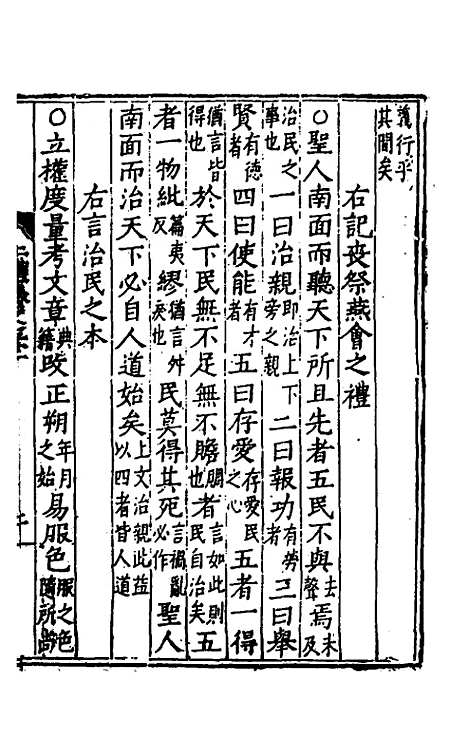 義行乎其間矣
右記喪祭燕會之禮
○聖人南面而聽天下所且先者五民不與去聲焉未及
治民之事也一曰治親即治上下旁之親二曰報功有勞者三曰舉
賢有德者四曰使能有才者五曰存愛存愛民之心五者一得
猶言皆得也於天下民無不足無不贍賙也者言如此則民自治矣五
者一物紕篇夷反繆猶言舛戾也民莫得其死言禍亂必作聖人
南面而治天下必自人道始矣上文治親此益以四者皆人道
右言治民之本
○立權度量考文章典籍攺正朔年月之始易服色服之色隨所尚